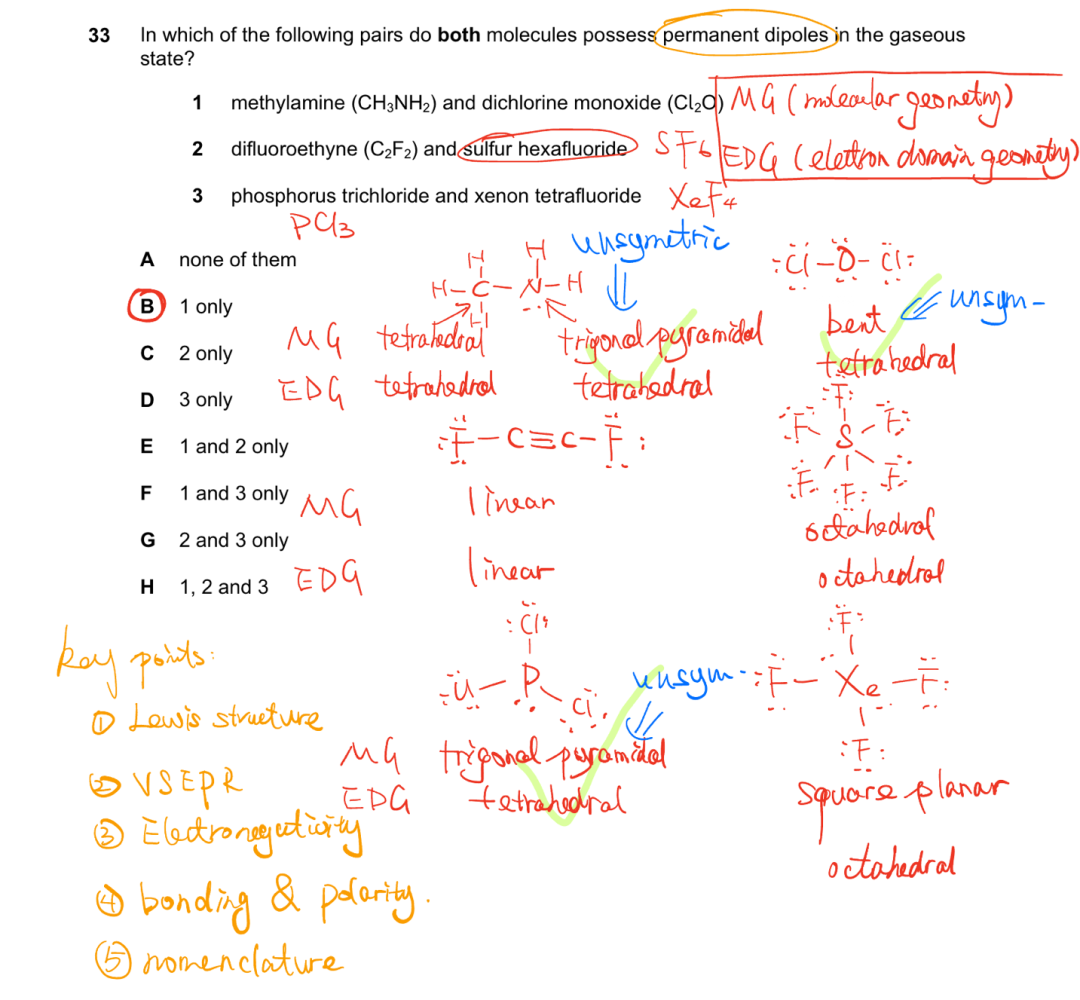 33 In which of the following pairs do both molecules possess permanent dipoles in the gaseous
state?
1 methylamine (CH₃NH₂) and dichlorine monoxide (Cl₂O) MG (molecular geometry)
2 difluoroethyne (C₂F₂) and sulfur hexafluoride SF6 EDG (elettron domain geometry)
3 phosphorus trichloride and xenon tetrafluoride XeF4
PCl3
A none of them
B 1 only
C 2 only
D 3 only
E 1 and 2 only
F 1 and 3 only
G 2 and 3 only
H 1, 2 and 3
unsymetric
H H
H–C–N–H
H
:Cl–O–Cl:
unsym-
MG tetrahedral trigonal pyramidal bent
EDG tetrahedral tetrahedral tetrahedral
:F–C≡C–F:
F
F S F
F F F
MG linear octahedral
EDG linear octahedral
Cl
Cl–P
Cl
unsym-
F
:F–Xe–F:
:F:
MG trigonal pyramidal square planar
EDG tetrahedral octahedral
key points:
① Lewis structure
② VSEPR
③ Electronegetivity
④ bonding & polarity.
⑤ nomenclature